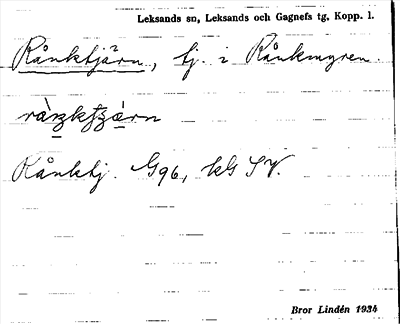 Leksands sn, Leksands och Gagnefs tg, Kopp. l.
Rånktjärn, tj. i Rånkmyren.
Rånktj. G96, kG SV.
Bror Lindén 1934